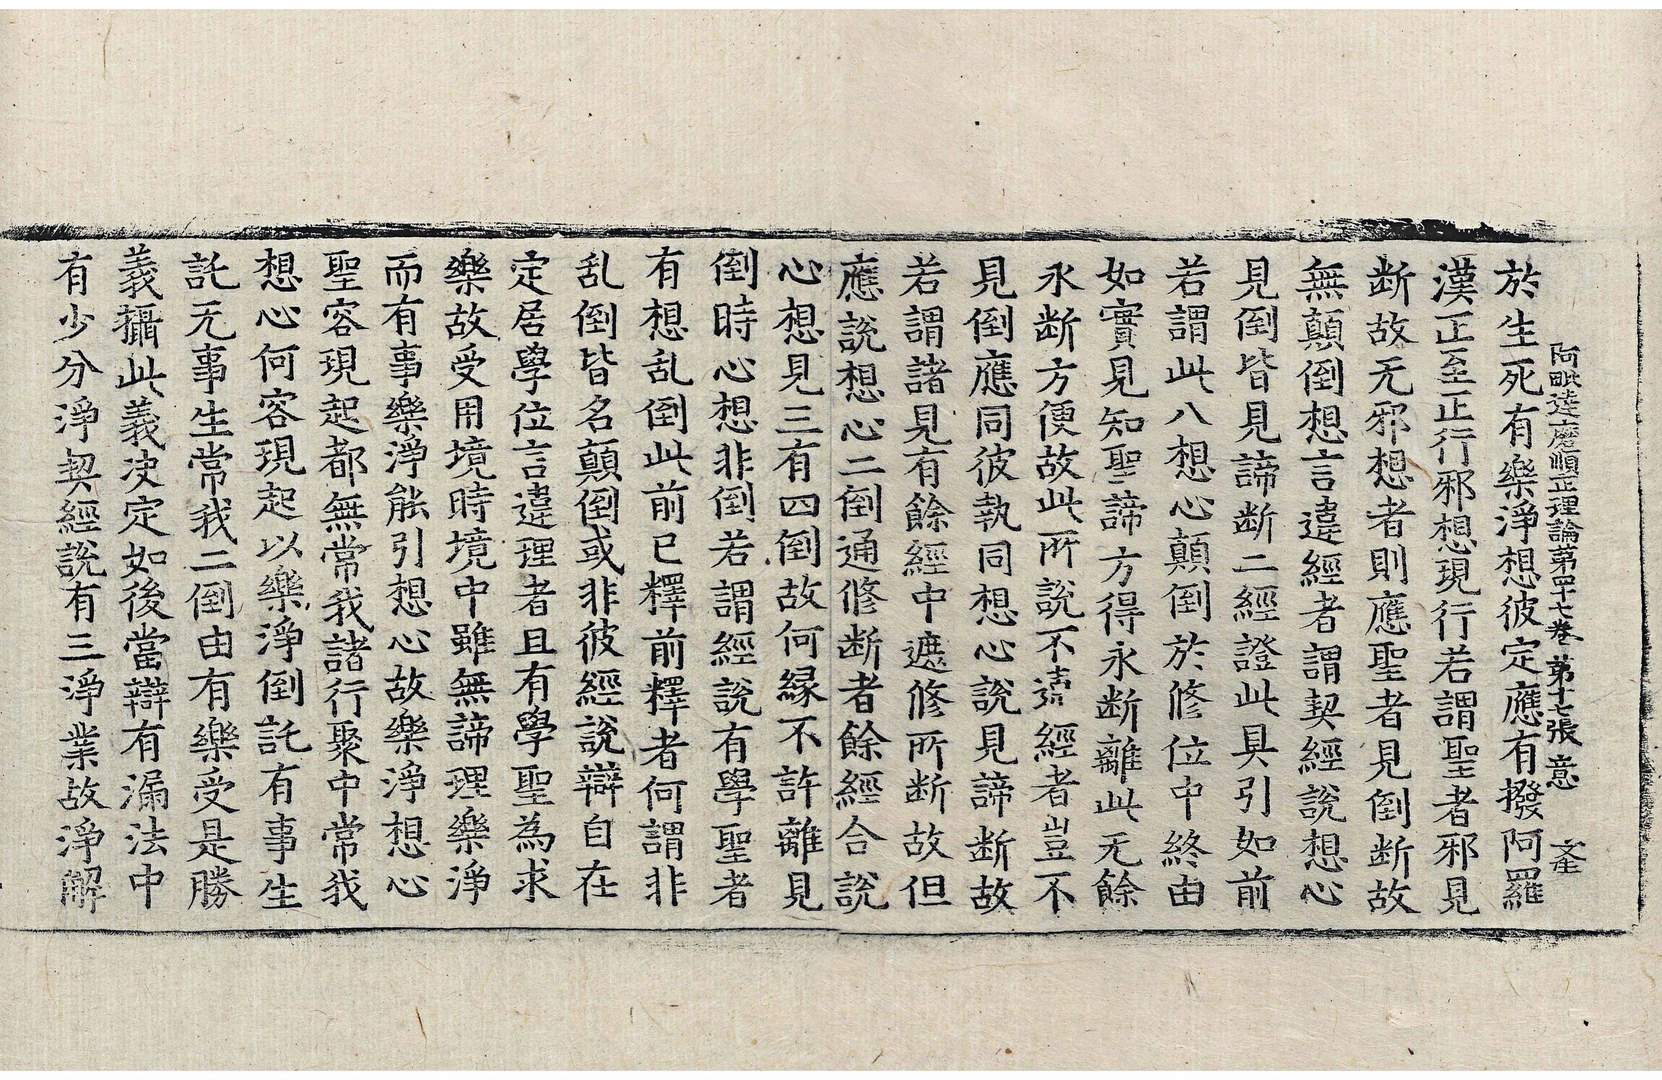 阿毗達磨順正理論第四十七卷 第十七張 意
於生死有樂淨想彼定應有撥阿羅
漢正至正行邪想現行若謂聖者邪見
断故无邪想者則應聖者見倒断故
無顛倒想言違經者謂契經說想心
見倒皆見諦断二經證此具引如前
若謂此八想心顛倒於修位中終由
如實見知聖諦方得永断離此无餘
永断方便故此所說不違經者豈不
見倒應同彼執同想心說見諦断故
若謂諸見有餘經中遮修所断故但
應說想心二倒通修断者餘經合說
心想見三有四倒故何緣不許離見
倒時心想非倒若謂經說有學聖者
有想乱倒此前已釋前釋者何謂非
乱倒皆名顛倒或非彼經說辯自在
定居學位言違理者且有學聖為求
樂故受用境時境中雖無諦理樂淨
而有事樂淨能引想心故樂淨想心
聖容現起都無常我諸行聚中常我
想心何容現起以樂淨倒託有事生
託无事生常我二倒由有樂受是勝
義攝此義决定如後當辯有漏法中
有少分淨契經說有三淨業故淨解